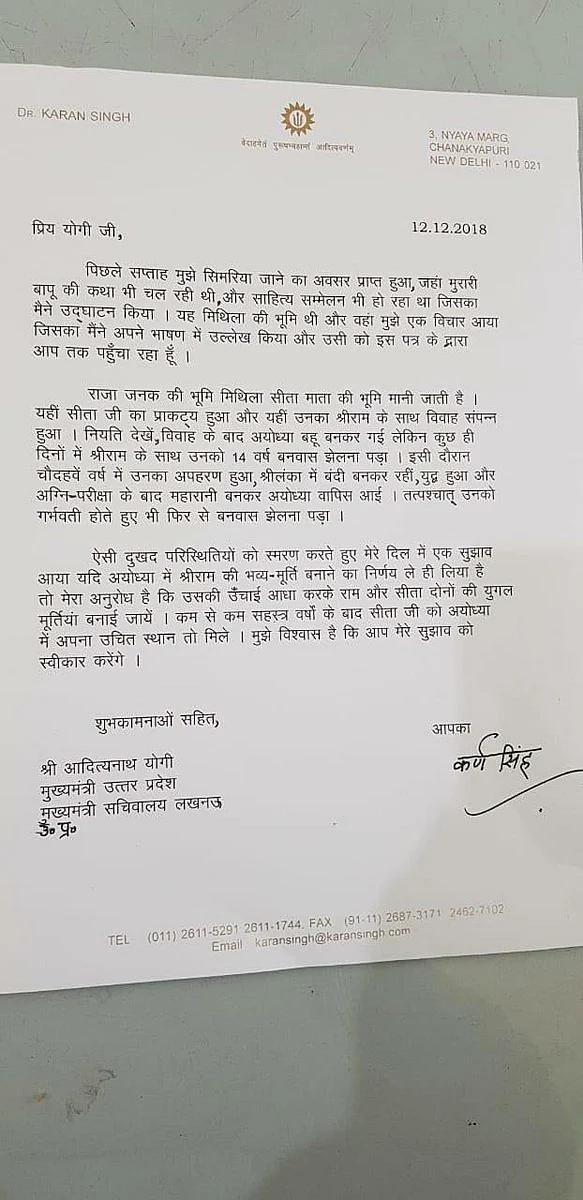 DR. KARAN SINGH
वेदाहमेतं पुरुषम्महान्तं आदित्यवर्णम्
3, NYAYA MARG,
CHANAKYAPURI
NEW DELHI - 110 021
प्रिय योगी जी,
12.12.2018
पिछले सप्ताह मुझे सिमरिया जाने का अवसर प्राप्त हुआ, जहां मुरारी
बापू की कथा भी चल रही थी,और साहित्य सम्मेलन भी हो रहा था जिसका
मैने उद्घाटन किया । यह मिथिला की भूमि थी और वहां मुझे एक विचार आया
जिसका मैंने अपने भाषण में उल्लेख किया और उसी को इस पत्र के द्वारा
आप तक पहुँचा रहा हूँ ।
राजा जनक की भूमि मिथिला सीता माता की भूमि मानी जाती है ।
यहीं सीता जी का प्राकट्य हुआ और यहीं उनका श्रीराम के साथ विवाह संपन्न
हुआ । नियति देखें,विवाह के बाद अयोध्या बहू बनकर गई लेकिन कुछ ही
दिनों में श्रीराम के साथ उनको 14 वर्ष बनवास झेलना पड़ा । इसी दौरान
चौदहवें वर्ष में उनका अपहरण हुआ,श्रीलंका में बंदी बनकर रहीं,युद्व हुआ और
अग्नि-परीक्षा के बाद महारानी बनकर अयोध्या वापिस आई । तत्पश्चात् उनको
गर्भवती होते हुए भी फिर से बनवास झेलना पड़ा ।
ऐसी दुखद परिस्थितियों को स्मरण करते हुए मेरे दिल में एक सुझाव
आया यदि अयोध्या में श्रीराम की भव्य-मूर्ति बनाने का निर्णय ले ही लिया है
तो मेरा अनुरोध है कि उसकी उँचाई आधा करके राम और सीता दोनों की युगल
मूर्तियां बनाई जायें । कम से कम सहस्त्र वर्षो के बाद सीता जी को अयोध्या
में अपना उचित स्थान तो मिले । मुझे विश्वास है कि आप मेरे सुझाव को
स्वीकार करेंगे ।
शुभकामनाओं सहित,
आपका
कर्ण सिंह
श्री आदित्यनाथ योगी
मुख्यमंत्री उत्तर प्रदेश
मुख्यमंत्री सचिवालय लखनऊ
उ॰ प्र॰
TEL (011) 2611-5291 2611-1744. FAX (91-11) 2687-3171 2462-7102
Email karansingh@karansingh.com